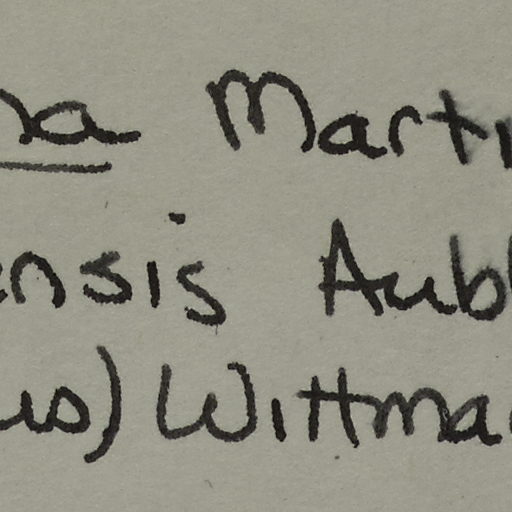 na Marti
ensis Aubl
us) Wittma